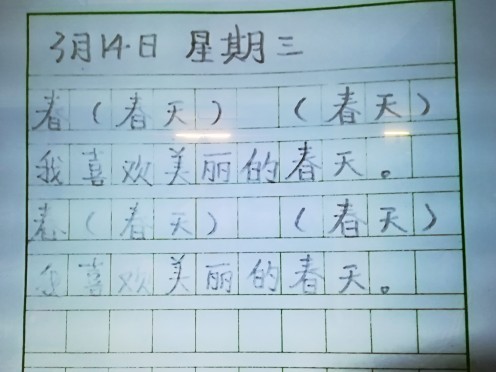 3月14日 星期三
春（春天）（春天）
我喜欢美丽的春天。
春（春天）（春天）
我喜欢美丽的春天。